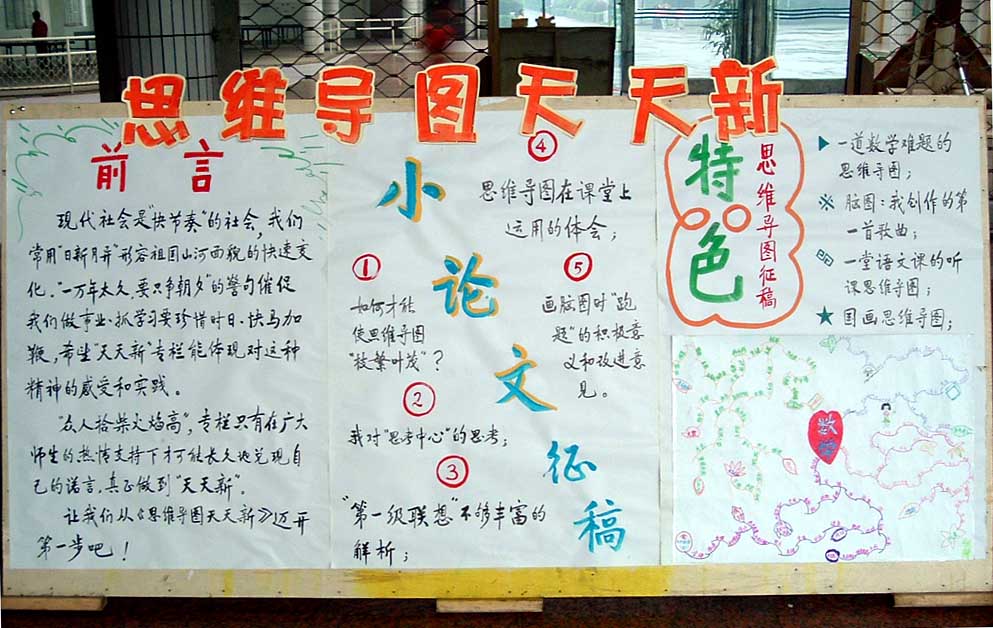 思维导图天天新
前言
现代社会是"快节奏"的社会，我们
常用"日新月异"形容祖国山河面貌的快速变
化。"一万年太久，要只争朝夕"的警句催促
我们做事业、抓学习要珍惜时日、快马加
鞭，希望"天天新"专栏能体现对这种
精神的感受和实践。
"众人拾柴火焰高"，专栏只有在广大
师生的热情支持下才可能长久地兑现自
己的诺言，真正做到"天天新"。
让我们从《思维导图天天新》迈开
第一步吧！
小论文征稿
①
如何才能
使思维导图
"枝繁叶茂"？
②
我对"思考中心"的思考；
③
"第一级联想"不够丰富的
解析；
④
思维导图在课堂上
运用的体会；
⑤
画脑图时"跑
题"的积极意
义和改进意
见。
特色
思维导图征稿
一道数学难题的
思维导图；
※ 脑图：我创作的第
一首歌曲；
一堂语文课的听
课思维导图；
★ 国画思维导图；
数学